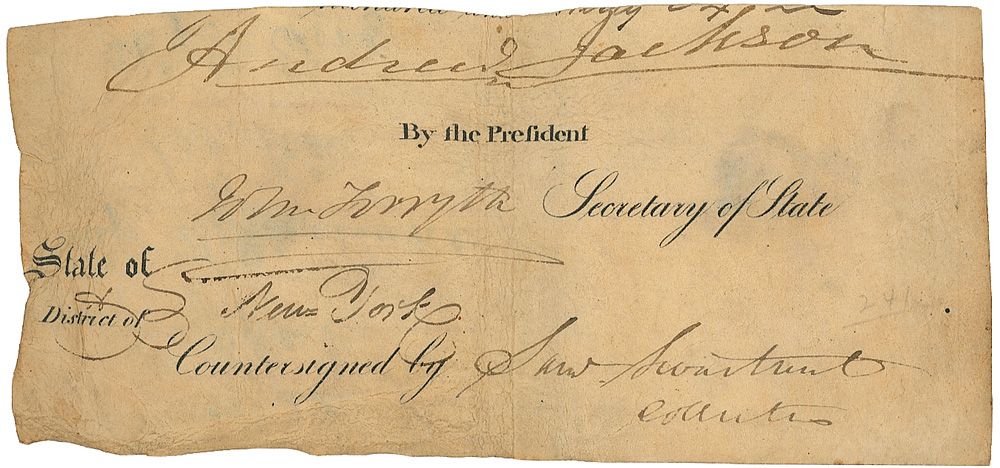 Andrew Jackson
By the Preſident
John Forsyth Secretary of State
State of
& New=York
District of
Countersigned by Saml. Swartwout
Collector